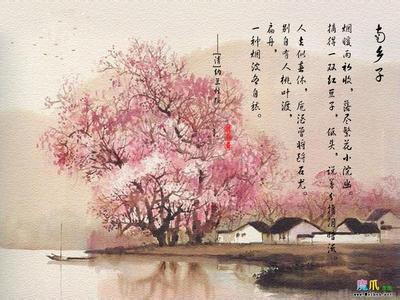 南乡子
烟暖雨初收，落尽繁花小院幽
摘得一双红豆子，低头，说着分携泪暗流
人去似春休，卮酒曾将酹石尤。
别自有人桃叶渡，
扁舟，
一种烟波各自愁。
——[清]纳兰性德
魔爪